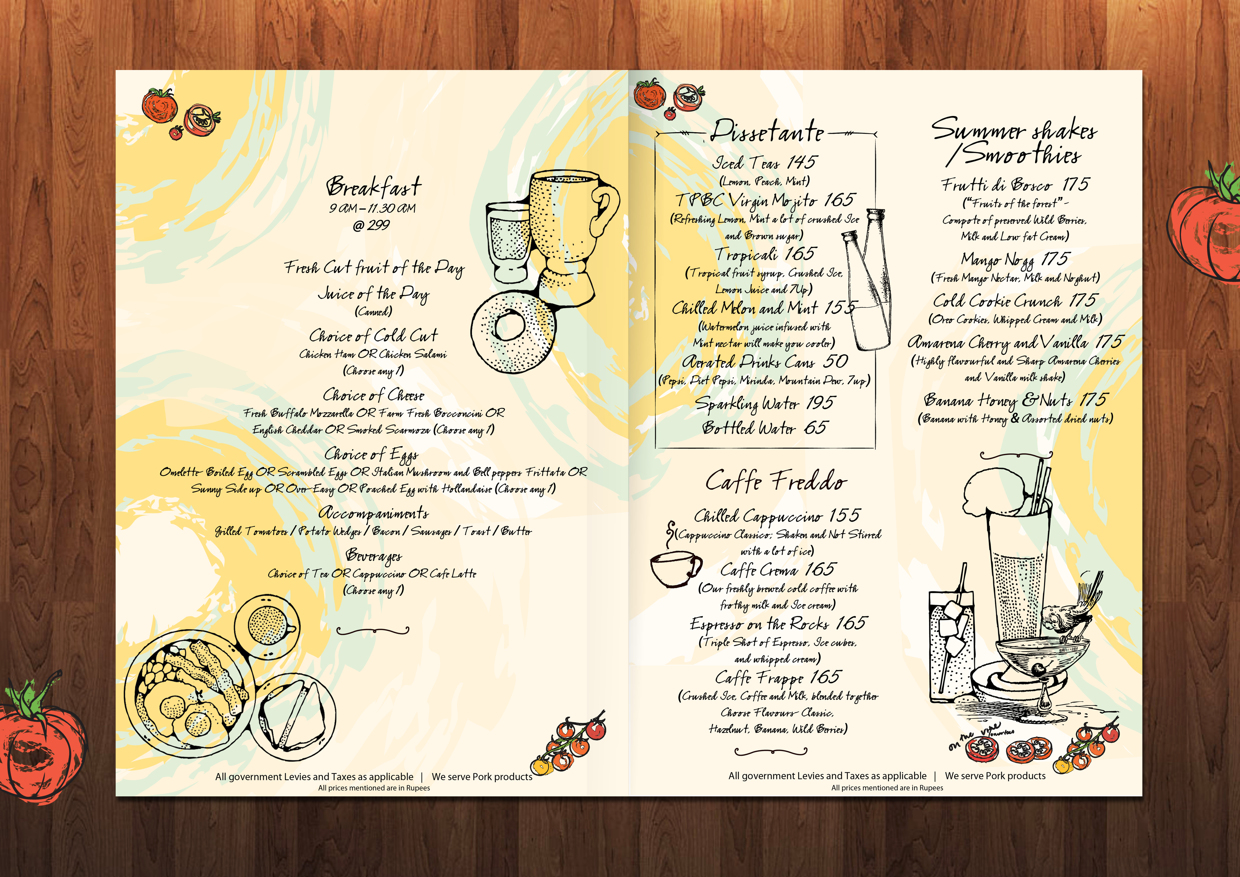 Breakfast
9 AM - 11.30 AM
@ 299
Fresh Cut fruit of the Day
Juice of the Day
(Canned)
Choice of Cold Cut
Chicken Ham OR Chicken Salami
(Choose any 1)
Choice of Cheese
Fresh Buffalo Mozzarella OR Farm Fresh Bocconcini OR
English Cheddar OR Smoked Scarmoza (Choose any 1)
Choice of Eggs
Omelette- Boiled Egg OR Scrambled Eggs OR Italian Mushroom and Bell peppers Frittata OR
Sunny Side up OR Over-Easy OR Poached Egg with Hollandaise (Choose any 1)
Accompaniments
Grilled Tomatoes / Potato Wedges / Bacon / Sausages / Toast / Butter
Beverages
Choice of Tea OR Cappuccino OR Cafe Latte
(Choose any 1)
All government Levies and Taxes as applicable | We serve Pork products
All prices mentioned are in Rupees
Dissetante
Iced Teas 145
(Lemon, Peach, Mint)
TPBC Virgin Mojito 165
(Refreshing Lemon, Mint a lot of crushed Ice
and Brown sugar)
Tropicali 165
(Tropical fruit syrup, Crushed Ice,
Lemon Juice and 7Up)
Chilled Melon and Mint 155
(Watermelon juice infused with
Mint nectar will make you cooler)
Aerated Drinks Cans 50
(Pepsi, Diet Pepsi, Mirinda, Mountain Dew, 7up)
Sparkling Water 195
Bottled Water 65
Caffe Freddo
Chilled Cappuccino 155
(Cappuccino Classico, Shaken and Not Stirred
with a lot of ice)
Caffe Crema 165
(Our freshly brewed cold coffee with
frothy milk and Ice cream)
Espresso on the Rocks 165
(Triple Shot of Espresso, Ice cubes,
and whipped cream)
Caffe Frappe 165
(Crushed Ice, Coffee and Milk, blended together
Choose Flavours- Classic,
Hazelnut, Banana, Wild Berries)
Summer shakes
/Smoothies
Frutti di Bosco 175
("Fruits of the forest" -
Compote of preserved Wild Berries,
Milk and Low fat Cream)
Mango Nogg 175
(Fresh Mango Nectar, Milk and Noghut)
Cold Cookie Crunch 175
(Oreo Cookies, Whipped Cream and Milk)
Amarena Cherry and Vanilla 175
(Highly flavourful and Sharp Amarena Cherries
and Vanilla milk shake)
Banana Honey & Nuts 175
(Banana with Honey & Assorted dried nuts)
on the vine
All government Levies and Taxes as applicable | We serve Pork products
All prices mentioned are in Rupees